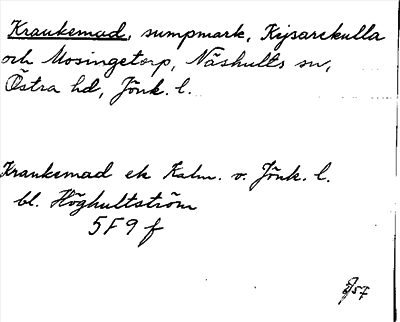 Kraukemad, sumpmark, Kejsarekulla
och Mosingetorp, Näshults sn,
Östra hd, Jönk. l.
Kraukemad ek Kalm. o. Jönk. l.
bl. Höghultström
5F9f
57